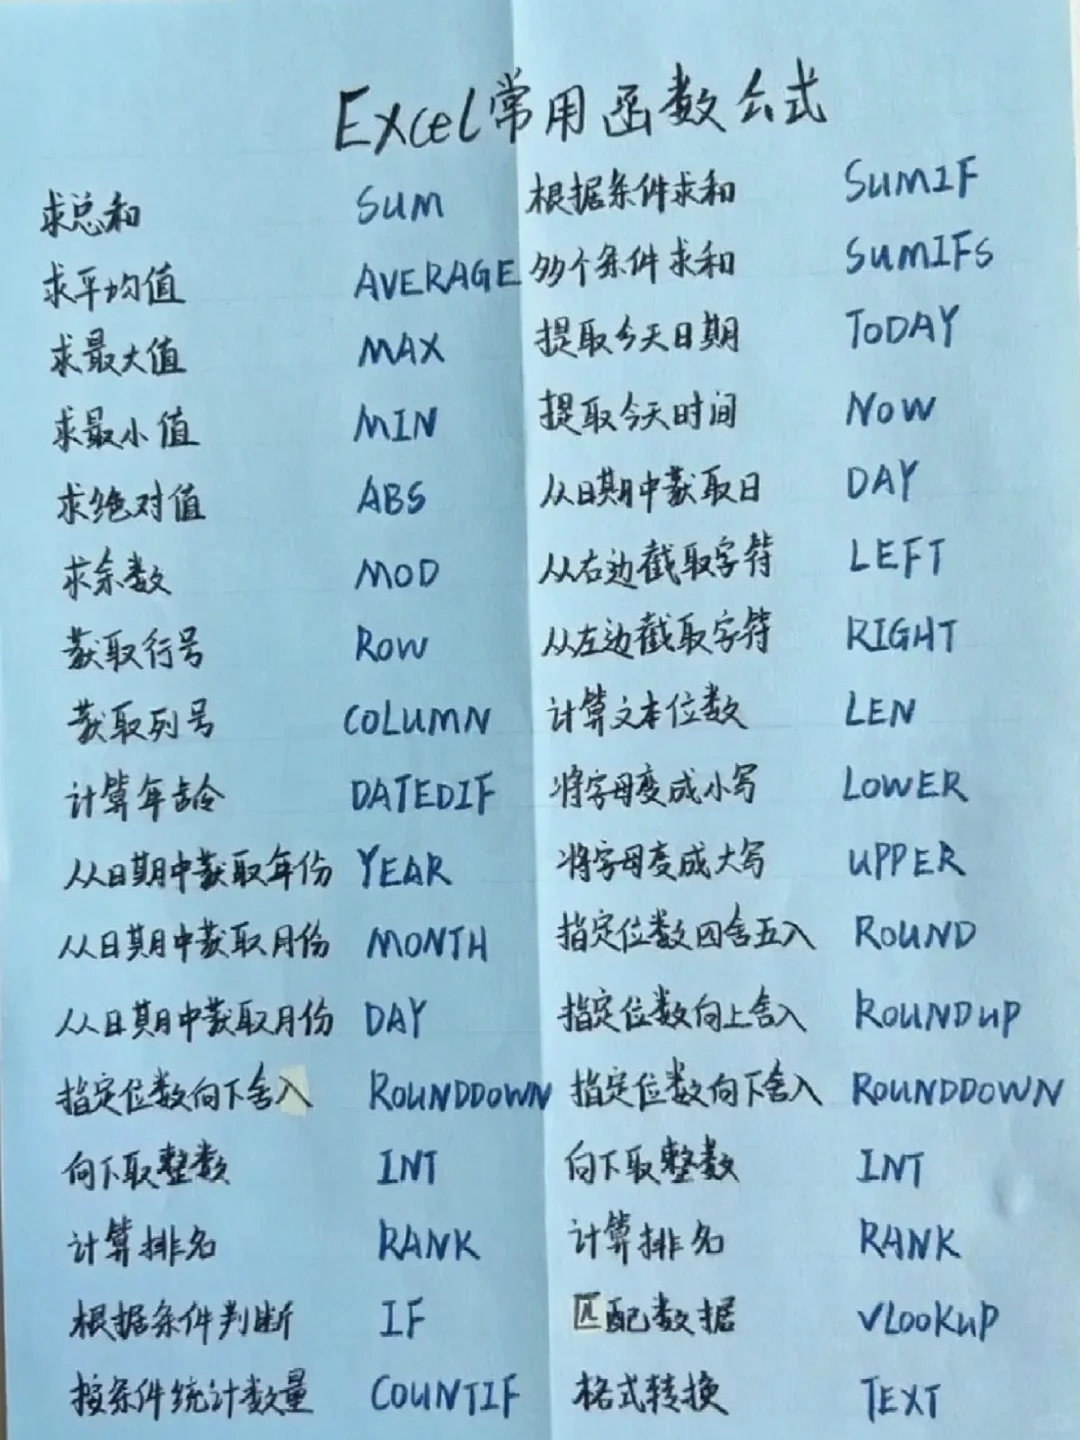 Excel常用函数公式
求总和 SUM
求平均值 AVERAGE
求最大值 MAX
求最小值 MIN
求绝对值 ABS
求余数 MOD
获取行号 ROW
获取列号 COLUMN
计算年龄 DATEDIF
从日期中获取年份 YEAR
从日期中获取月份 MONTH
从日期中获取月份 DAY
指定位数向下舍入 ROUNDDOWN
向下取整数 INT
计算排名 RANK
根据条件判断 IF
按条件统计数量 COUNTIF
根据条件求和 SUMIF
多个条件求和 SUMIFS
提取今天日期 TODAY
提取今天时间 NOW
从日期中获取日 DAY
从右边截取字符 LEFT
从左边截取字符 RIGHT
计算文本位数 LEN
将字母变成小写 LOWER
将字母变成大写 UPPER
指定位数四舍五入 ROUND
指定位数向上舍入 ROUNDUP
指定位数向下舍入 ROUNDDOWN
向下取整数 INT
计算排名 RANK
匹配数据 VLOOKUP
格式转换 TEXT